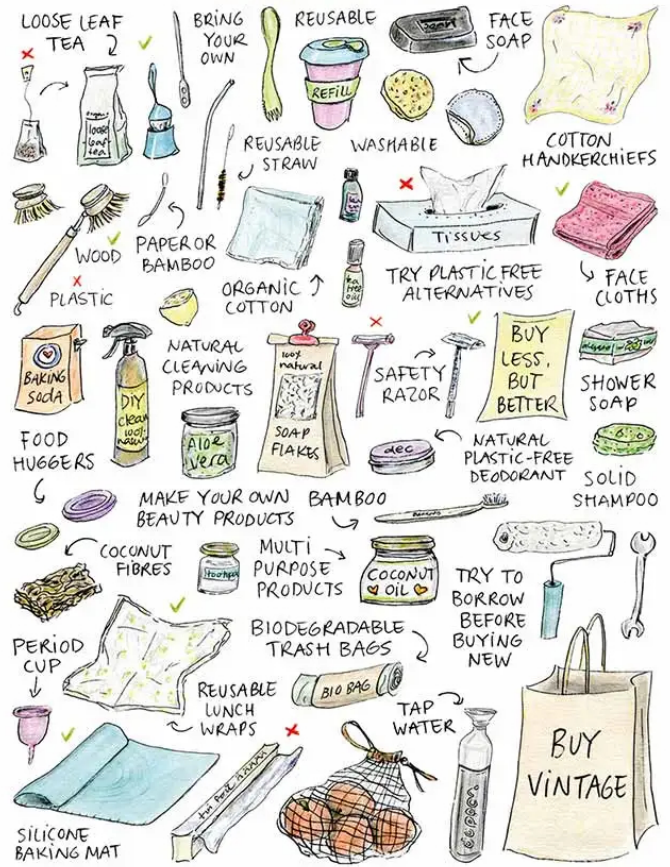 LOOSE LEAF
TEA
BRING
YOUR
OWN
REUSABLE
REFILL
FACE
SOAP
loose
leaf
tea
REUSABLE
STRAW
WASHABLE
COTTON
HANDKERCHIEFS
WOOD
PLASTIC
PAPER OR
BAMBOO
ORGANIC
COTTON
tea
tree
oil
TISSUES
TRY PLASTIC FREE
ALTERNATIVES
FACE
CLOTHS
BAKING
SODA
DIY
clean
100%
NATURAL
CLEANING
PRODUCTS
Aloe
vera
100%
natural
SOAP
FLAKES
SAFETY
RAZOR
BUY
LESS,
BUT
BETTER
SHOWER
SOAP
deo
NATURAL
PLASTIC-FREE
DEODORANT
SOLID
SHAMPOO
FOOD
HUGGERS
MAKE YOUR OWN
BEAUTY PRODUCTS
BAMBOO
COCONUT
FIBRES
MULTI
PURPOSE
PRODUCTS
COCONUT
OIL
TRY TO
BORROW
BEFORE
BUYING
NEW
PERIOD
CUP
BIODEGRADABLE
TRASH BAGS
BIO BAG
REUSABLE
LUNCH
WRAPS
TAP
WATER
BUY
VINTAGE
SILICONE
BAKING MAT